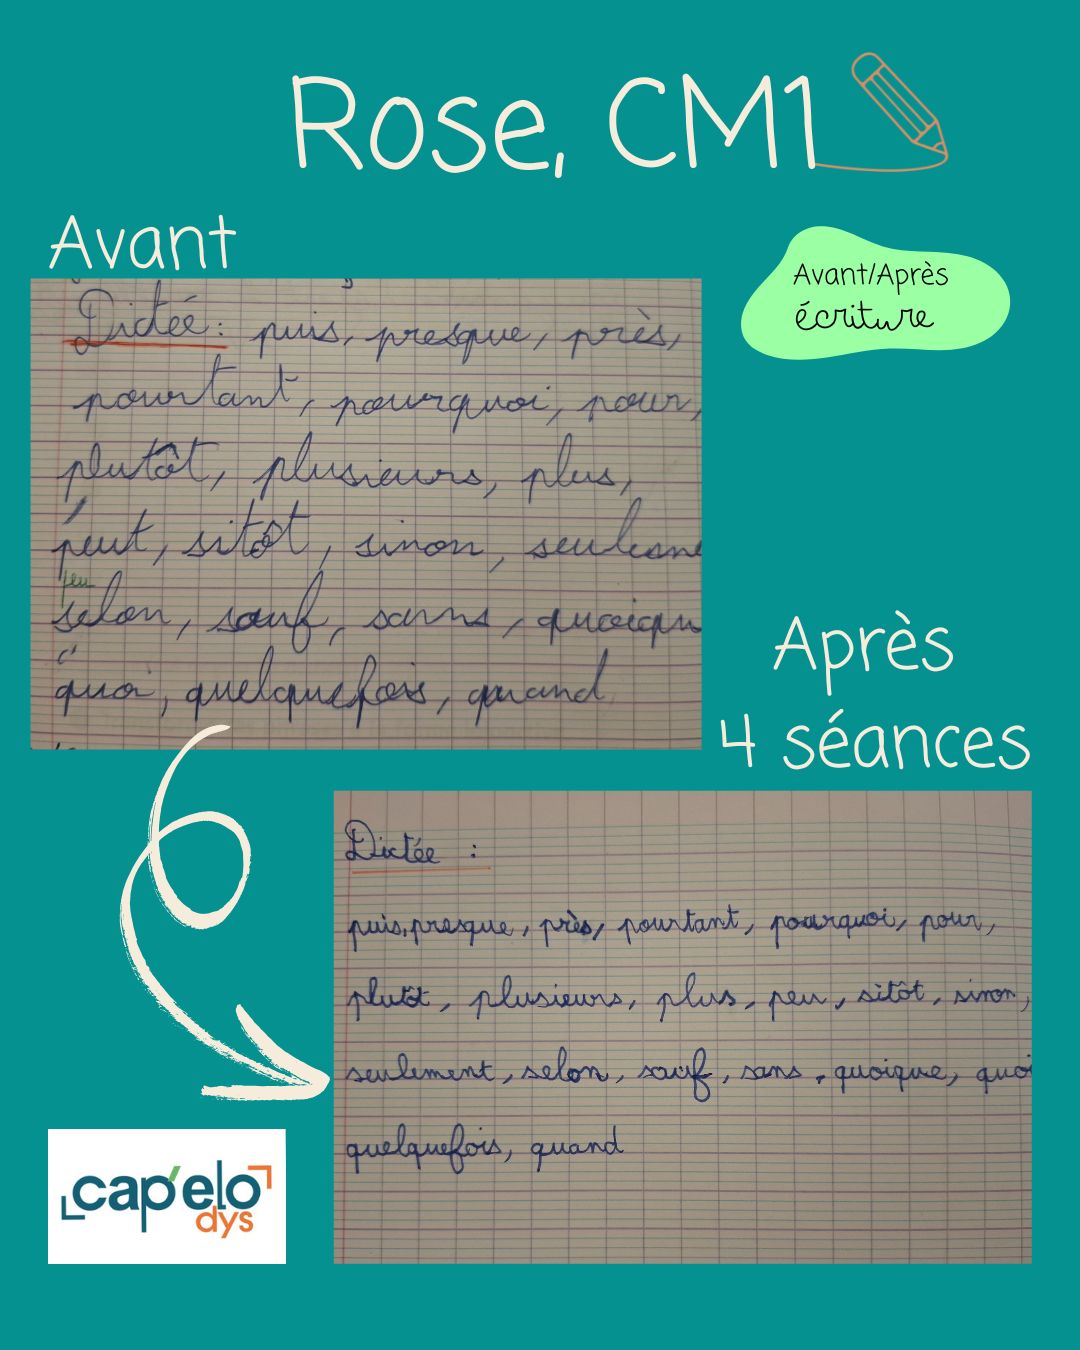 Rose, CM1
Avant
Avant/Après
écriture
Dictée : puis, presque, près,
pourtant, pourquoi, pour,
plutôt, plusieurs, plus,
peut, sitôt, sinon, seuleme
peu
selon, sauf, sans, quoiqu
quoi, quelquefois, quand
Après
4 séances
Dictée :
puis, presque, près, pourtant, pourquoi, pour,
plutôt, plusieurs, plus, peu, sitôt, sinon,
seulement, selon, sauf, sans, quoique, quoi
quelquefois, quand
cap'elo
dys